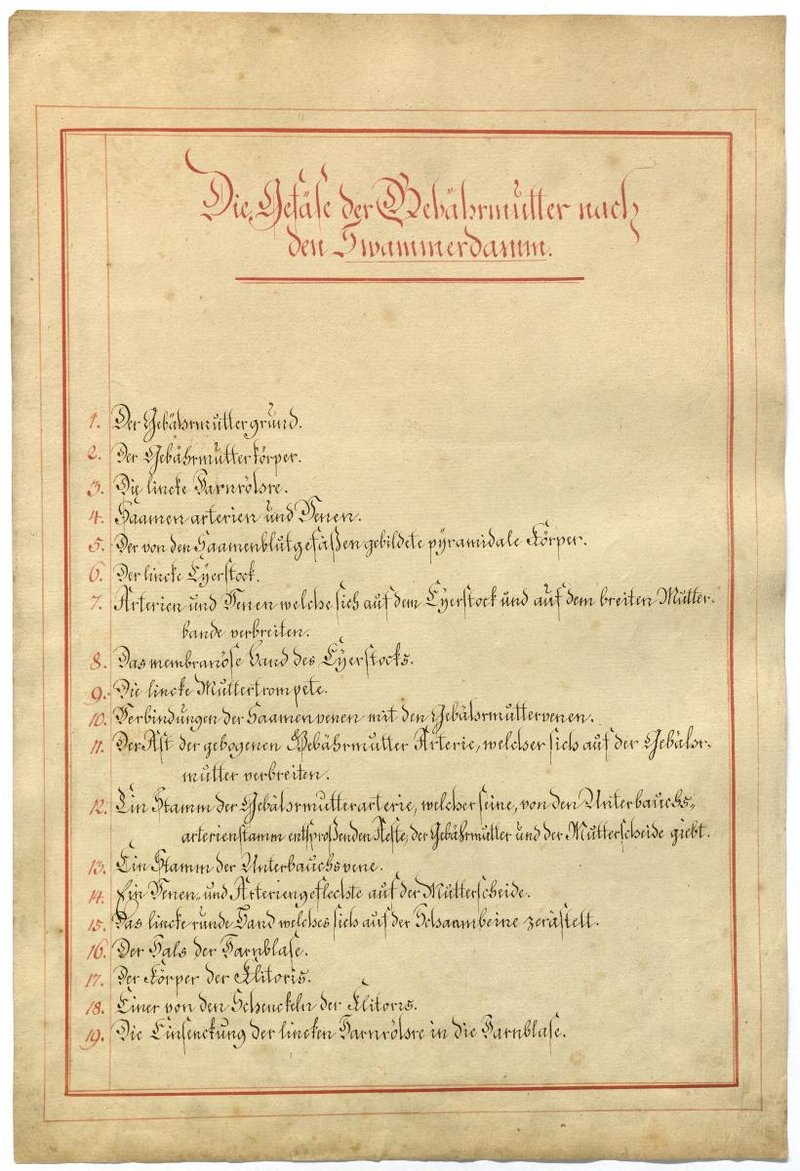 Die Gefäse der Gebährmutter nach
den Swammerdamm.
1. Der Gebährmuttergrund.
2. Der Gebährmutterkörper.
3. Die lincke Harnröhre.
4. Saamen arterien und Venen.
5. Der von den Saamenblutgefäßen gebildete pÿramidale Körper.
6. Der lincke Eÿerstock.
7. Arterien und Venen welche sich auf dem Eÿerstock und auf dem breiten Mutter-
bande verbreiten.
8. Das membranöse Band des Eÿerstocks.
9. Die lincke Muttertrompete.
10. Verbindungen der Saamenvenen mit den Gebährmuttervenen.
11. Der Ast der gebogenen Gebährmutter Arterie, welcher sich auf der Gebähr-
mutter verbreiten.
12. Ein Stamm der Gebährmutterarterie, welcher seine, von den Unterbauchs-
arterienstamm entsproßenden Aeste, der Gebährmutter und der Mutterscheide giebt.
13. Ein Stamm der Unterbauchsvene.
14. Ein Venen- und Arteriengeflechte auf der Mutterscheide.
15. Das lincke runde Band welches sich auf der Schaambeine zerästelt.
16. Der Hals der Harnblase.
17. Der Körper der Klitoris.
18. Einer von den Schenckeln der Klitoris.
19. Die Einsenckung der lincken Harnröhre in die Harnblase.